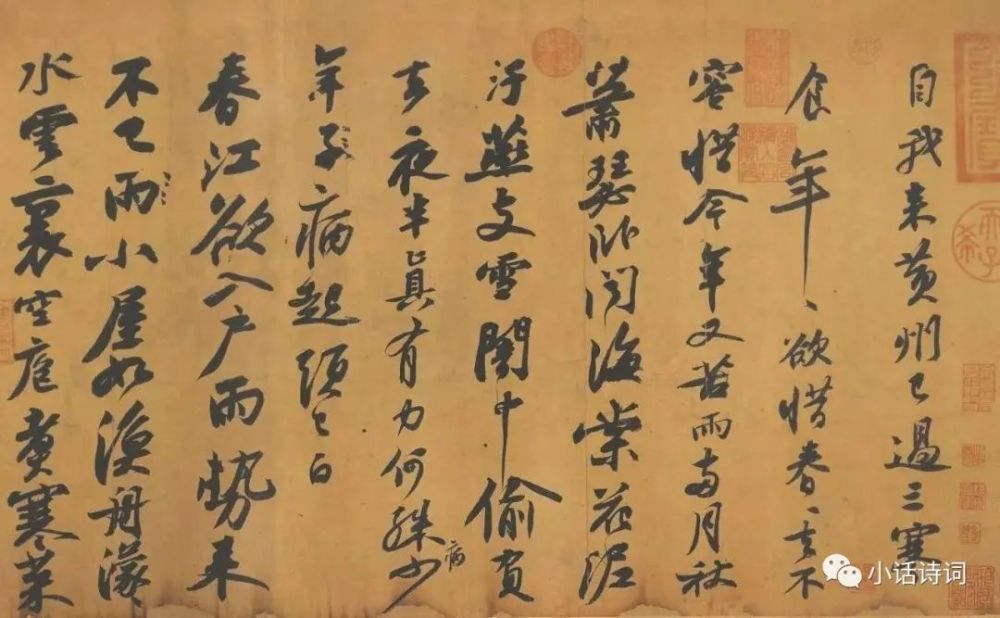 自我来黄州已過三寒
食年〻欲惜春〻去不
容惜今年又苦雨兩月秋
蕭瑟卧聞海棠花泥
汙燕支雪闇中偷負
去夜半真有力何殊病少
年子病起頭已白
春江欲入户雨勢来
不已雨小屋如漁舟濛〻
水雲裏空庖煑寒菜
小话诗词